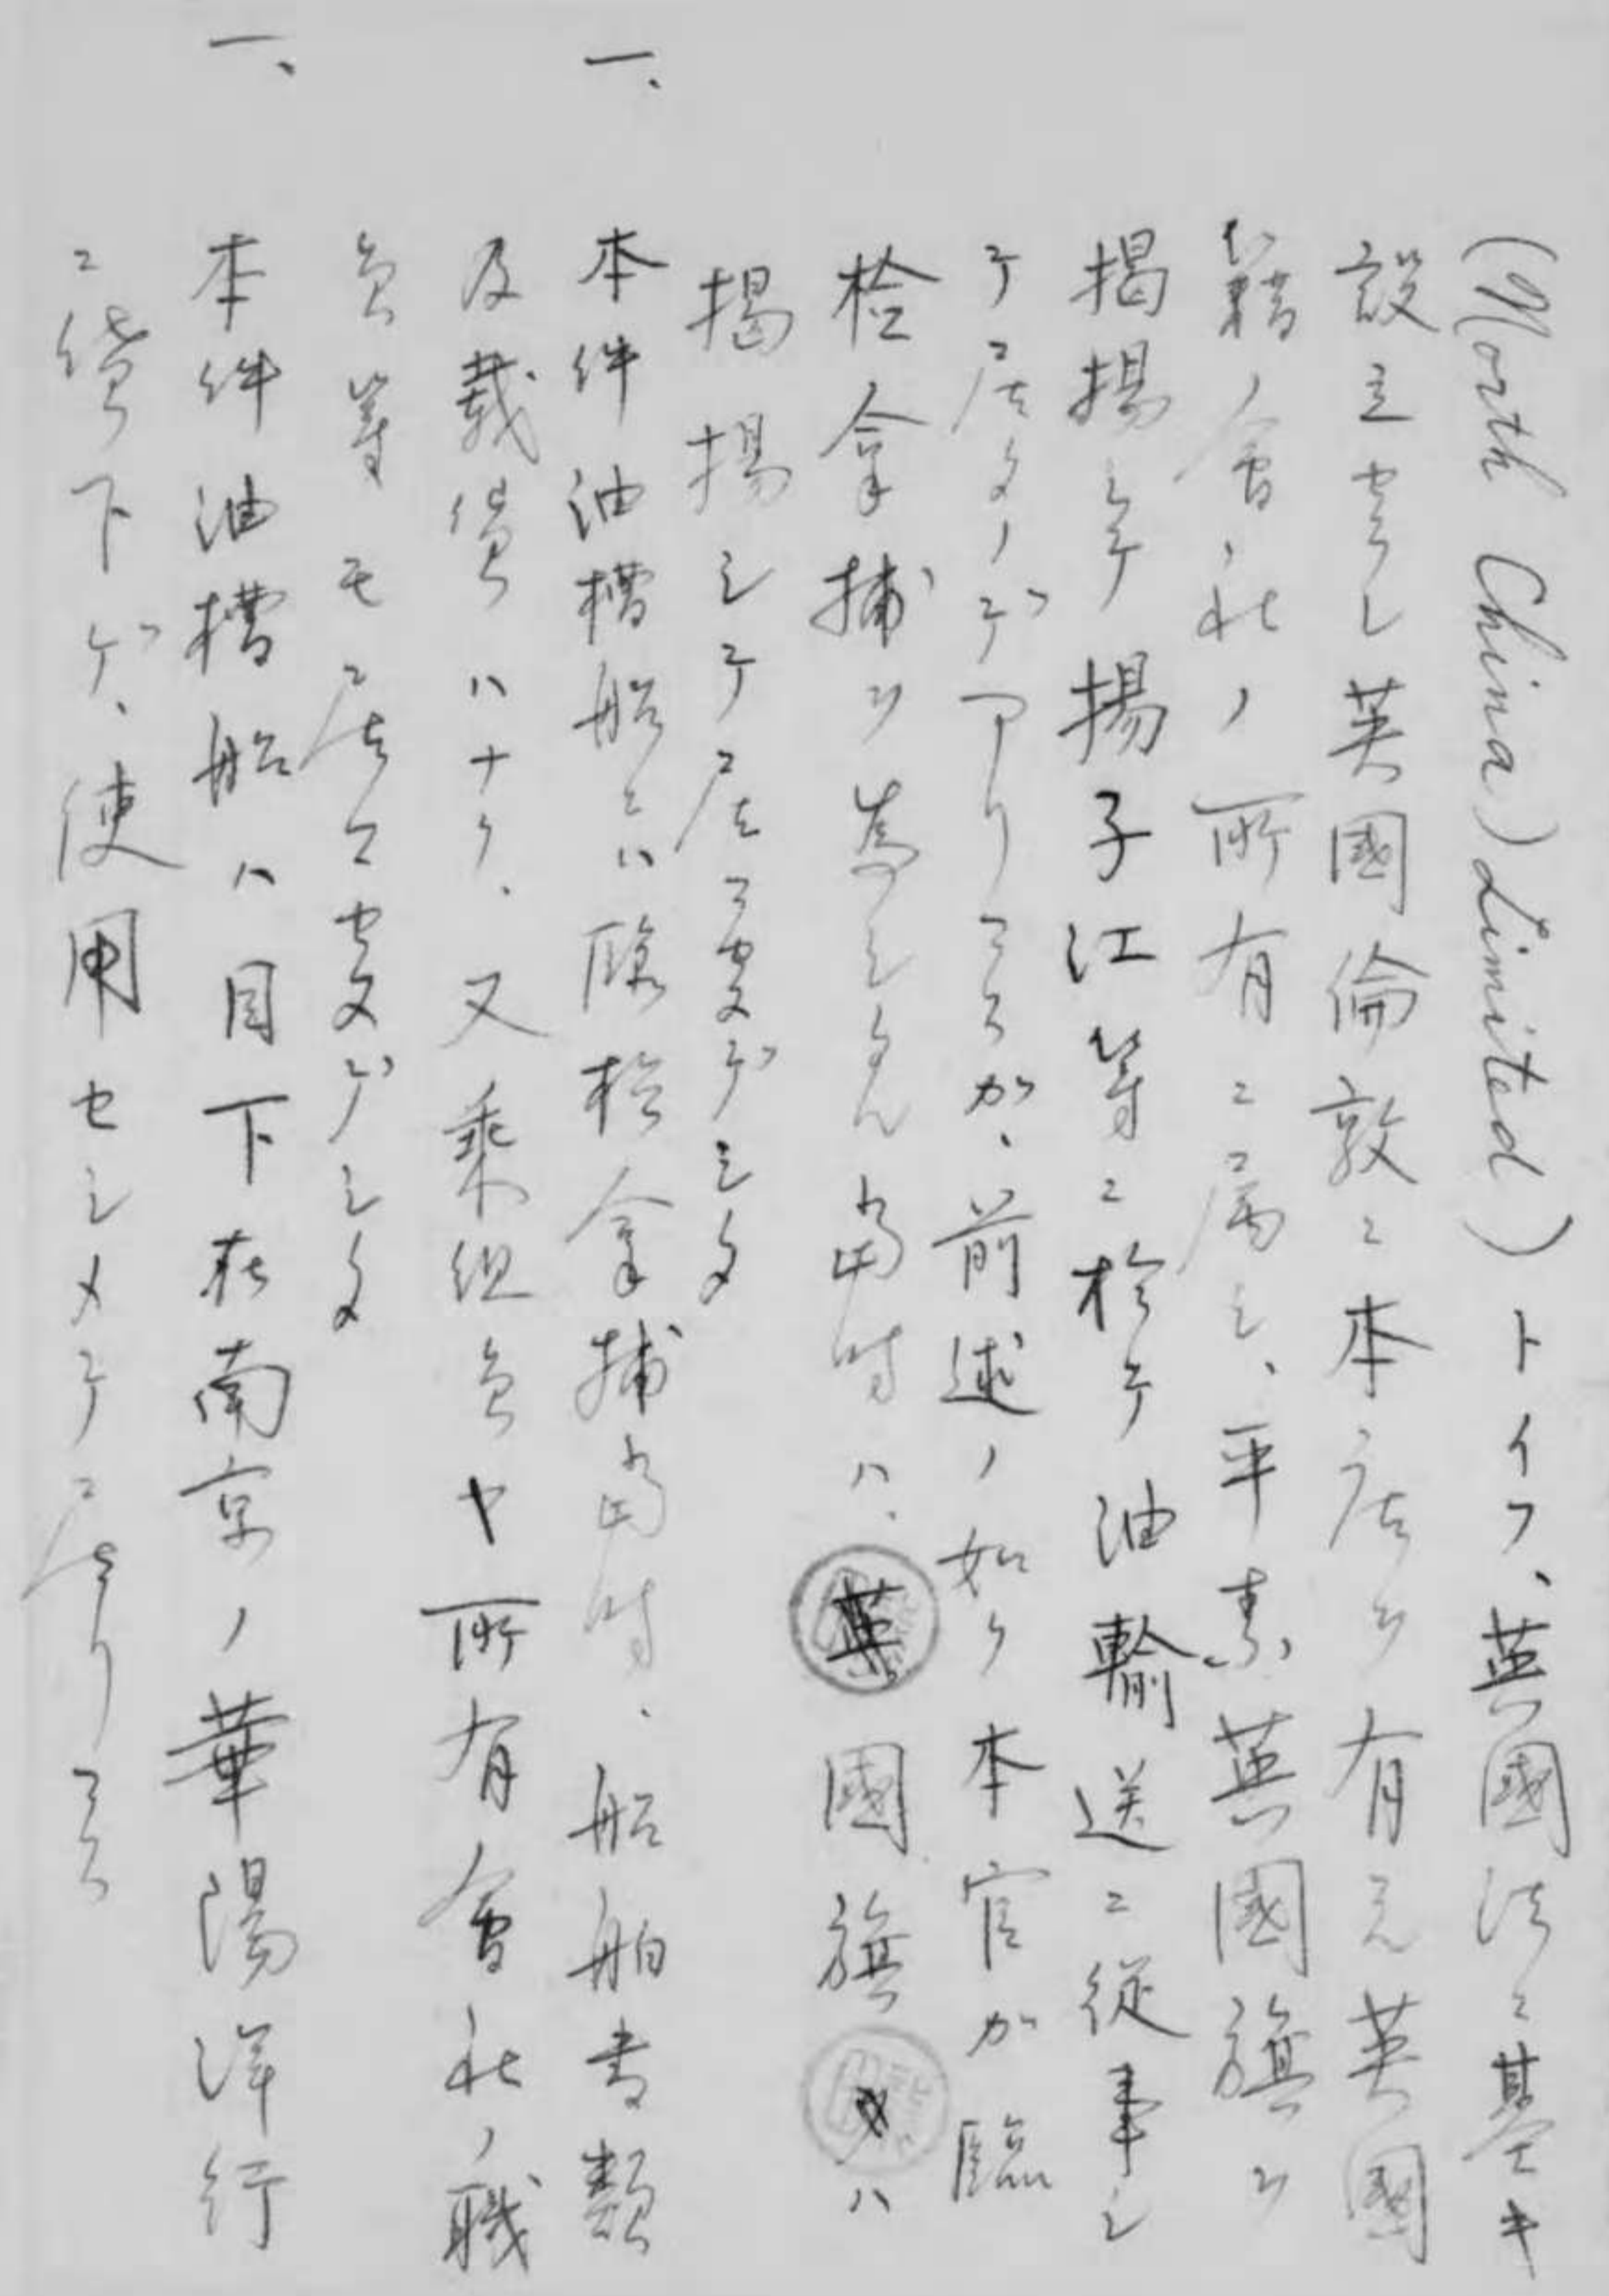 (North China) Limited)トイフ、英國法ニ基キ
設立セラレ英國倫敦ニ本店ヲ有スル英國
籍ノ會社ノ所有ニ屬シ、平素英國旗ヲ
掲揚シテ揚子江等ニ於テ油輸送ニ從事シ
テ居タノデアリマスガ、前述ノ如ク本官ガ臨
檢拿捕ヲ為シタル當時ハ、英國旗ハ
掲揚シテ居マセヌデシタ
一、本件油槽船ニハ臨檢拿捕當時、船舶書類
及載貨ハナク、又乘組員ヤ所有會社ノ職
員等モ居マセヌデシタ
一、本件油槽船ハ目下在南京ノ華陽洋行
ニ貸下ゲ、使用セシメテ居リマス